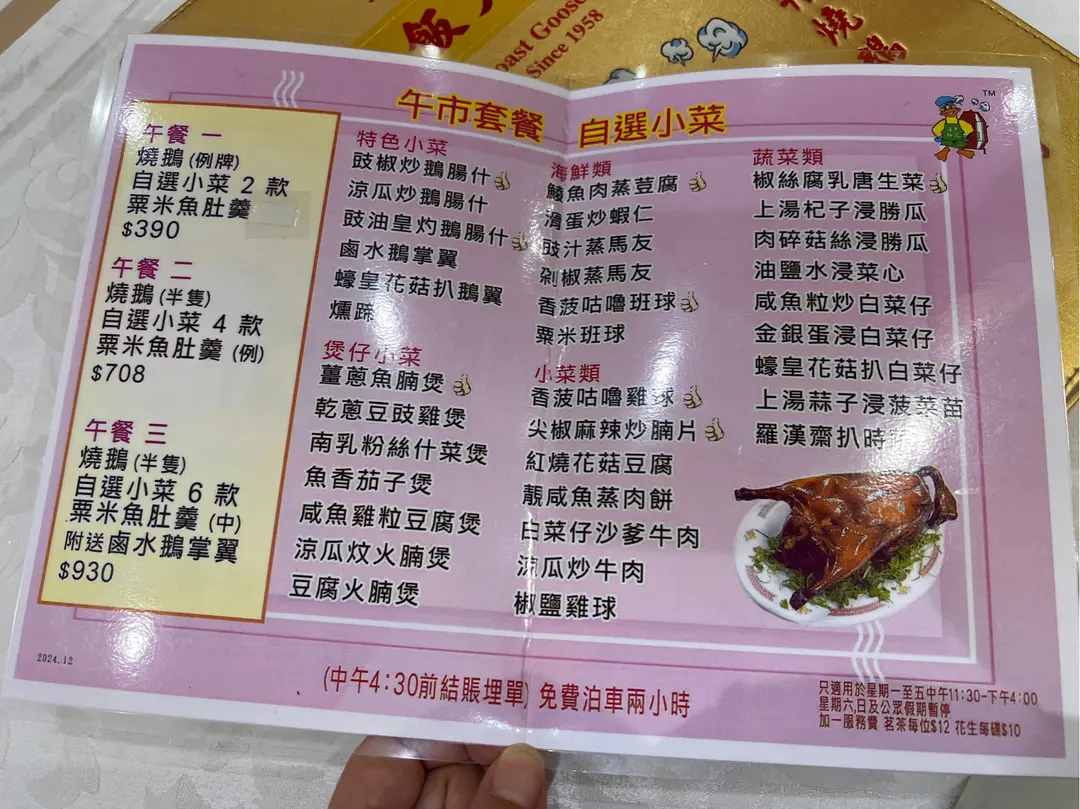 飯
oast Goose
Since 1958
燒
鵝
午市套餐 自選小菜
TM
午餐 一
燒鵝 (例牌)
自選小菜 2 款
粟米魚肚羹
$390
午餐 二
燒鵝 (半隻)
自選小菜 4 款
粟米魚肚羹 (例)
$708
午餐 三
燒鵝 (半隻)
自選小菜 6 款
粟米魚肚羹 (中)
附送鹵水鵝掌翼
$930
特色小菜
豉椒炒鵝腸什
涼瓜炒鵝腸什
豉油皇灼鵝腸什
鹵水鵝掌翼
蠔皇花菇扒鵝翼
燻蹄
煲仔小菜
薑蔥魚腩煲
乾蔥豆豉雞煲
南乳粉絲什菜煲
魚香茄子煲
咸魚雞粒豆腐煲
涼瓜炆火腩煲
豆腐火腩煲
海鮮類
鯪魚肉蒸荳腐
滑蛋炒蝦仁
豉汁蒸馬友
剁椒蒸馬友
香菠咕嚕班球
粟米班球
小菜類
香菠咕嚕雞球
尖椒麻辣炒腩片
紅燒花菇豆腐
靚咸魚蒸肉餅
白菜仔沙爹牛肉
涼瓜炒牛肉
椒鹽雞球
蔬菜類
椒絲腐乳唐生菜
上湯杞子浸勝瓜
肉碎菇絲浸勝瓜
油鹽水浸菜心
咸魚粒炒白菜仔
金銀蛋浸白菜仔
蠔皇花菇扒白菜仔
上湯蒜子浸菠菜苗
羅漢齋扒時
2024.12
(中午4:30前結賬埋單) 免費泊車兩小時
只適用於星期一至五中午11:30-下午4:00
星期六,日及公眾假期暫停
加一服務費 茗茶每位$12 花生每碟$10